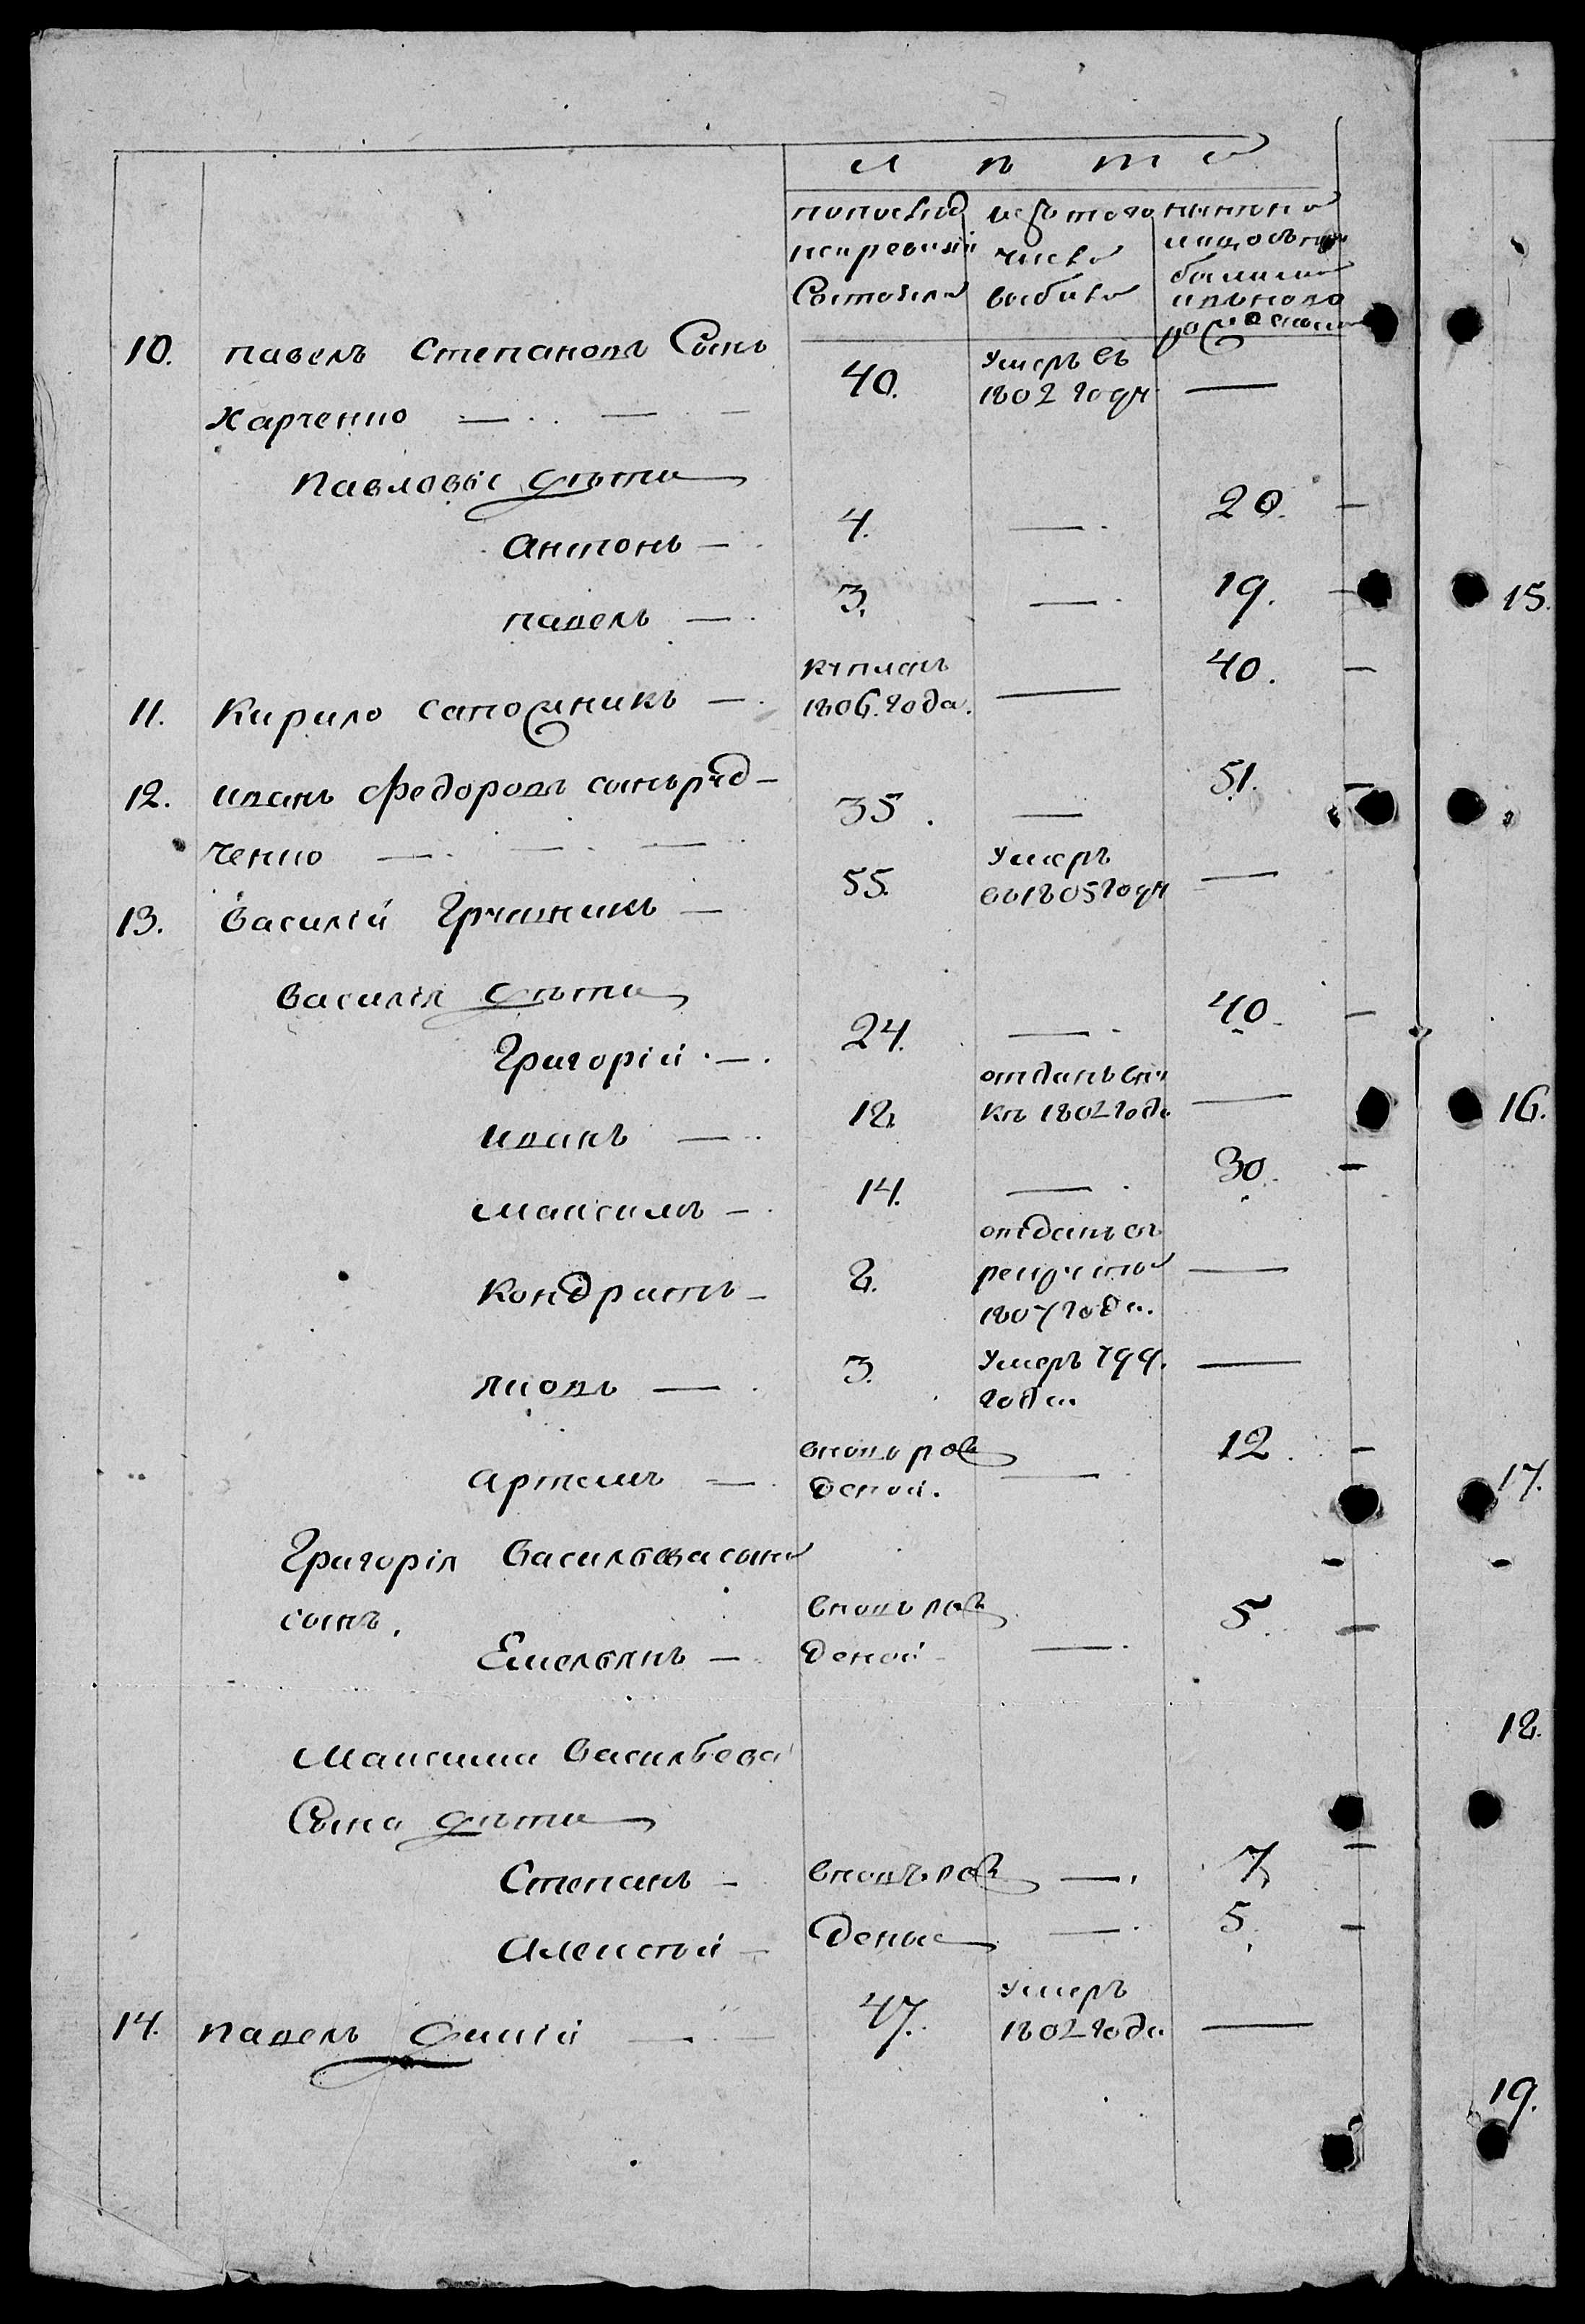 лѣта
попослѣд
ней ревизіи
Состояло
изъ того
числа
выбыло
ныне на
лицо съ при
былыми
и вновь
рожденными
10. павелъ Степановъ Сынъ
Харченко — 40. Умеръ въ
1802 году —
Павловы дѣти
антонъ — 4. — 20.
павелъ — 3. — 19.
11. Кирило сапожникъ — купланъ
1806. года. — 40.
12. иванъ Федоровъ сынъ руд-
ченко — 35. — 51.
13. Василій Грчаникъ — 55. Умеръ
въ 1805 году —
Василія дѣти
Григорій — 24. — 40.
иванъ — 18. отданъ
1802 года —
максимъ — 14. — 30.
Кондратъ — 8. отданъ въ
рекруты
1807 года. —
яковъ — 3. Умеръ 799.
года. —
артемъ — вновь рож
деной. — 12.
Григорія Васильева сына
сынъ.
Емельянъ — вновь рож
деной — 5.
Максима Васильева
Сына дѣти
Степанъ — вновь рож — 7.
Алексѣй — деные — 5.
14. павелъ — 47. Умеръ
1802 года —
15.
16.
17.
18.
19.